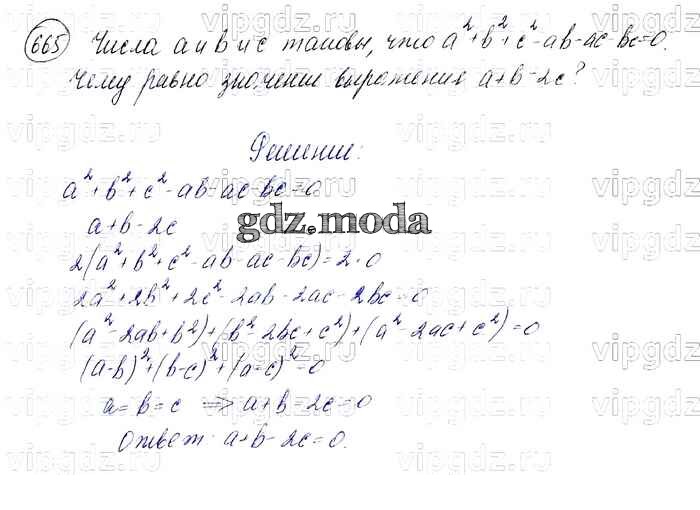 665 Числа a и b и c таковы, что a²+b²+c²-ab-ac-bc=0.
Чему равно значение выражения a+b-2c?
Решение:
a²+b²+c²-ab-ac-bc=0
a+b-2c
gdz.moda
2(a²+b²+c²-ab-ac-bc)=2·0
2a²+2b²+2c²-2ab-2ac-2bc=0
(a²-2ab+b²)+(b²-2bc+c²)+(a²-2ac+c²)=0
(a-b)²+(b-c)²+(a-c)²=0
a=b=c ⇒ a+b-2c=0
Ответ: a+b-2c=0.
vipgdz.ru